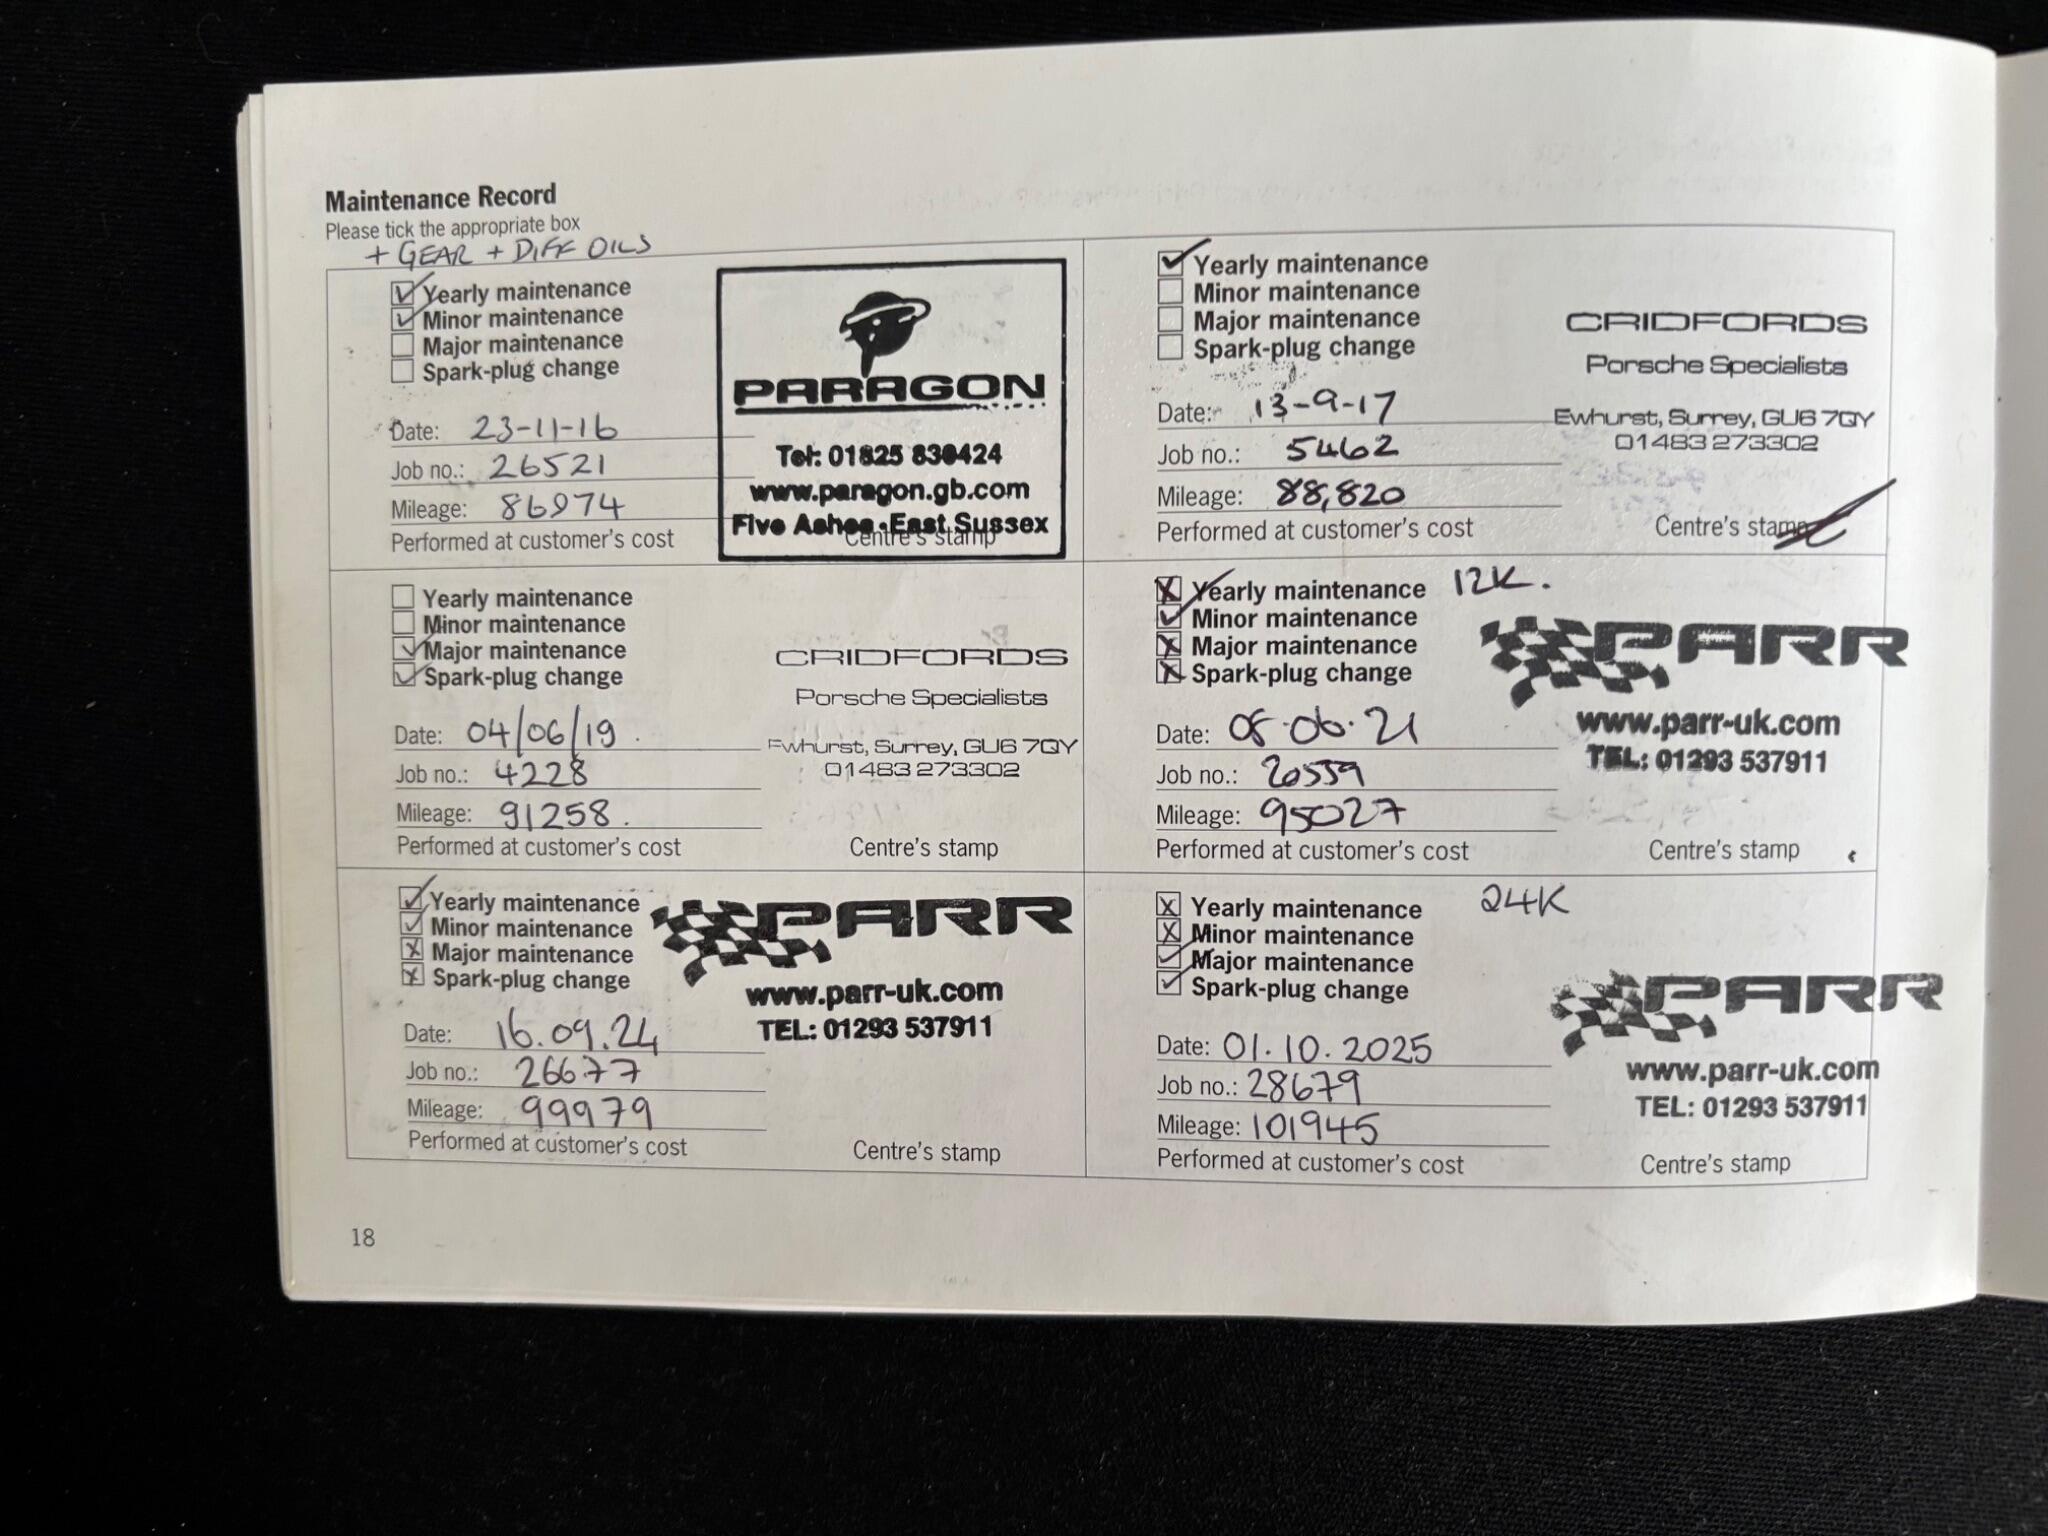 Maintenance Record
Please tick the appropriate box
+ GEAR + DIFF OILS
Yearly maintenance
Minor maintenance
Major maintenance
Spark-plug change
Date: 23-11-16
Job no.: 26521
Mileage: 86974
Performed at customer's cost
PARAGON
Tel: 01825 830424
www.paragon.gb.com
Five Ashes · East Sussex
Centre's stamp
Yearly maintenance
Minor maintenance
Major maintenance
Spark-plug change
Date: 13-9-17
Job no.: 5462
Mileage: 88,820
Performed at customer's cost
CRIDFORDS
Porsche Specialists
Ewhurst, Surrey, GU6 7QY
01483 273302
Centre's stamp
Yearly maintenance
Minor maintenance
Major maintenance
Spark-plug change
Date: 04/06/19.
Job no.: 4228
Mileage: 91258.
Performed at customer's cost
CRIDFORDS
Porsche Specialists
Ewhurst, Surrey, GU6 7QY
01483 273302
Centre's stamp
Yearly maintenance 12K.
Minor maintenance
Major maintenance
Spark-plug change
Date: 08.06.21
Job no.: 20559
Mileage: 95027
Performed at customer's cost
PARR
www.parr-uk.com
TEL: 01293 537911
Centre's stamp
Yearly maintenance
Minor maintenance
Major maintenance
Spark-plug change
Date: 16.09.24
Job no.: 26677
Mileage: 99979
Performed at customer's cost
PARR
www.parr-uk.com
TEL: 01293 537911
Centre's stamp
Yearly maintenance 24K
Minor maintenance
Major maintenance
Spark-plug change
Date: 01.10.2025
Job no.: 28679
Mileage: 101945
Performed at customer's cost
PARR
www.parr-uk.com
TEL: 01293 537911
Centre's stamp
18